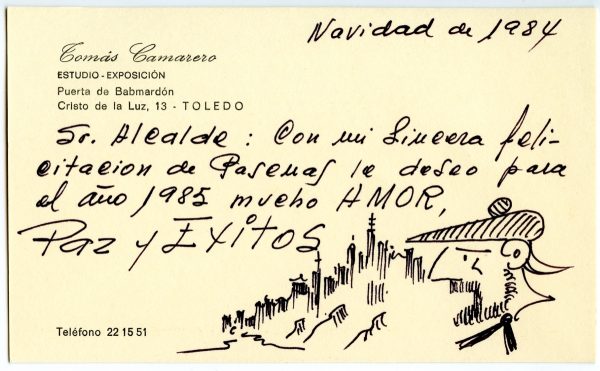 Navidad de 1984
Tomás Camarero
ESTUDIO-EXPOSICIÓN
Puerta de Babmardón
Cristo de la Luz, 13 - TOLEDO
Sr. Alcalde : Con mi sincera feli-
citacion de Pascuas le deseo para
el año 1985 mucho AMOR,
Paz y EXITOS
Teléfono 22 15 51